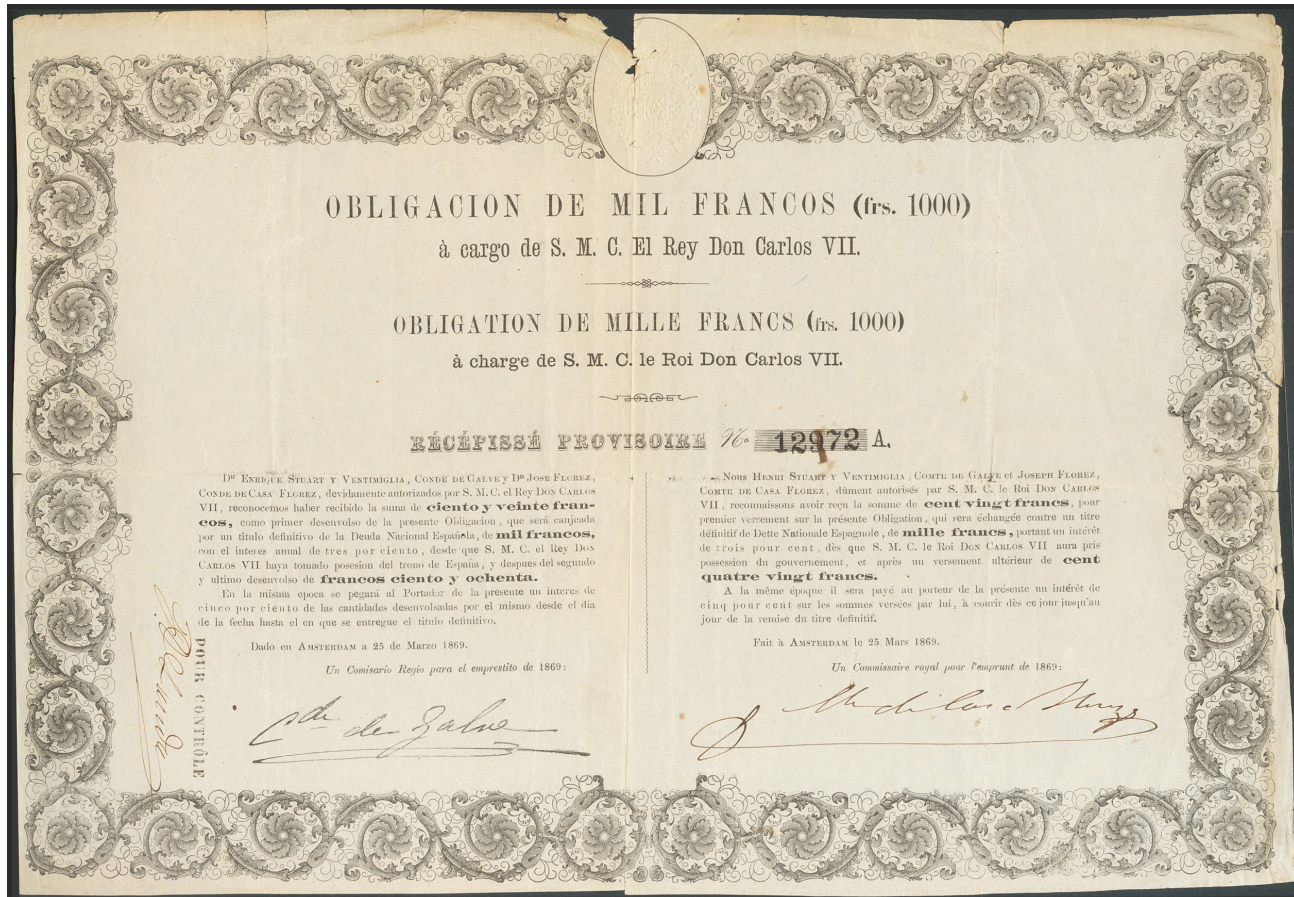 OBLIGACION DE MIL FRANCOS (frs. 1000)
à cargo de S. M. C. El Rey Don Carlos VII.
OBLIGATION DE MILLE FRANCS (frs. 1000)
à charge de S. M. C. le Roi Don Carlos VII.
RÉCÉPISSÉ PROVISOIRE No 12972 A.
Dn ENRIQUE STUART Y VENTIMIGLIA, CONDE DE GALVE Y Dn JOSE FLOREZ,
CONDE DE CASA FLOREZ, devidamente autorizados por S. M. C. el Rey DON CARLOS
VII, reconocemos haber recibido la suma de ciento y veinte fran-
cos, como primer desenvolso de la presente Obligacion, que será canjeada
por un titulo definitivo de la Deuda Nacional Española, de mil francos,
con el interes annual de tres por ciento, desde que S. M. C. el Rey DON
CARLOS VII haya tomado posesion del trono de España, y despues del segundo
y ultimo desenvolso de francos ciento y ochenta.
En la misma epoca se pegará al Portador de la presente un interes de
cinco por ciento de las cantidades desenvolsadas por el mismo desde el dia
de la fecha hasta el en que se entregue el titulo definitivo.
Dado en AMSTERDAM a 25 de Marzo 1869.
Un Comisario Regio para el emprestito de 1869:
Cde de Galve
POUR CONTRÔLE
Nous HENRI STUART Y VENTIMIGLIA, COMTE DE GALVE et JOSEPH FLOREZ,
COMTE DE CASA FLOREZ, dûment autorisés par S. M. C. le Roi DON CARLOS
VII, reconnaissons avoir reçu la somme de cent vingt francs, pour
premier versement sur la présente Obligation, qui sera échangée contre un titre
définitif de Dette Nationale Espagnole, de mille francs, portant un intérêt
de trois pour cent, dès que S. M. C. le Roi DON CARLOS VII aura pris
possession du gouvernement, et après un versement ultérieur de cent
quatre vingt francs.
A la même époque il sera payé au porteur de la présente un intérêt de
cinq pour cent sur les sommes versées par lui, à courir dès ce jour jusqu'au
jour de la remise du titre definitif.
Fait à AMSTERDAM le 25 Mars 1869.
Un Commissaire royal pour l'emprunt de 1869: